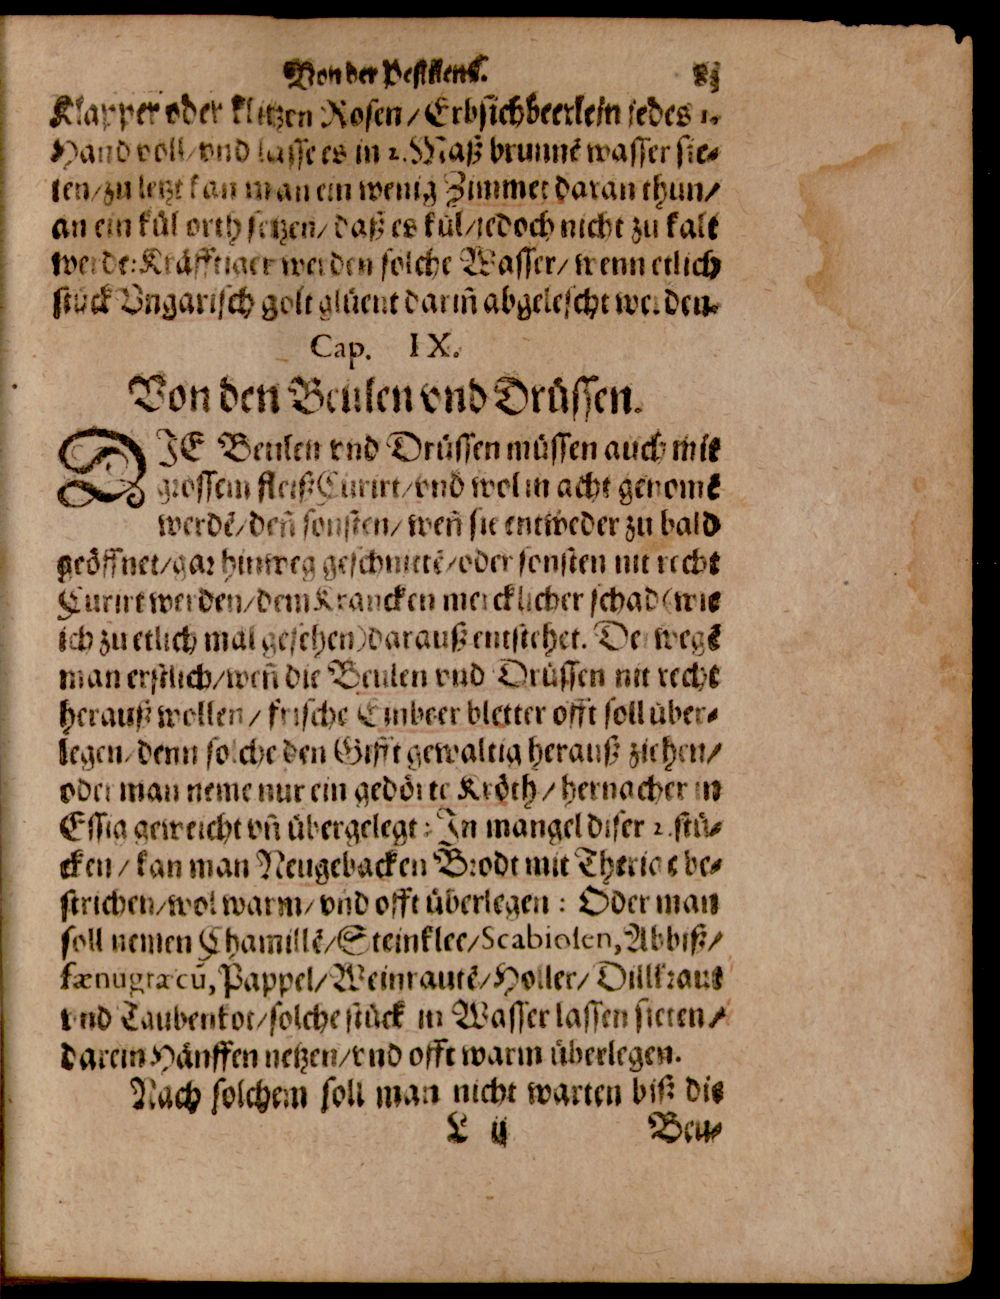 Von der Pestilentz.
Klapper oder klitzen Rosen/Erbsichbeerlein jedes 1.
Hand voll/vnd lasse es in 2. Maß brunnē wasser sie⸗
ten/zu letzt kan man ein wenig Zimmet daran thun/
an ein kůl orth setzen/daß es kůl/jedoch nicht zu kalt
werde: Kräfftiger werden solche Wasser/wenn etlich
stůck Vngarisch golt glůent darin̄ abgelescht werden.
Cap. IX.
Von den Beulen vnd Drůssen.
DIE Beulen vnd Drůssen můssen auch mit
grossem fleiß Curirt/vnd wol in acht genomē
werdē/den̄ sonsten/wen̄ sie entweder zu bald
geöffnet/gar hinweg geschnittē/oder sonsten nit recht
Curirt werden/dem Krancken mercklicher schad (wie
ich zu etlich mal gesehen) darauß entstehet. Derwegē
man erstlich/wen̄ die Beulen vnd Drůssen nit recht
herauß wollen/frische Einbeer bletter offt soll ůber⸗
legen/denn solche den Gifft gewaltig herauß ziehen/
oder man neme nur ein gedörrte Kröth/hernacher in
Essig geweicht vn̄ ůbergelegt: In mangel diser 2. stů⸗
cken/kan man Neugebacken Brodt mit Theriac be⸗
strichen/wol warm/vnd offt ůberlegen: Oder man
soll nemen Chamillē/Steinklee/Scabiolen, Abbiß/
fænugræcū, Pappel/Weinrautē/Holler/Dillkraut
vnd Taubenkot/solche stůck in Wasser lassen sieten/
darein Hänffen netzen/vnd offt warm ůberlegen.
Nach solchem soll man nicht warten biß die
L ij Beu⸗